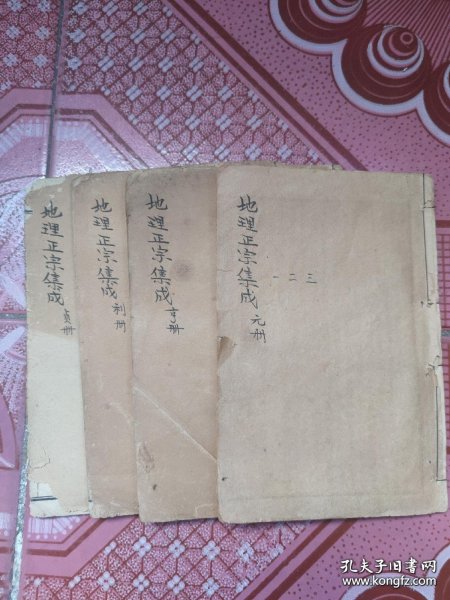 地理正宗集成 元册
一 二 三
地理正宗集成 亨册
地理正宗集成 利册
地理正宗集成 贞册
孔夫子旧书网
www.kongfz.com